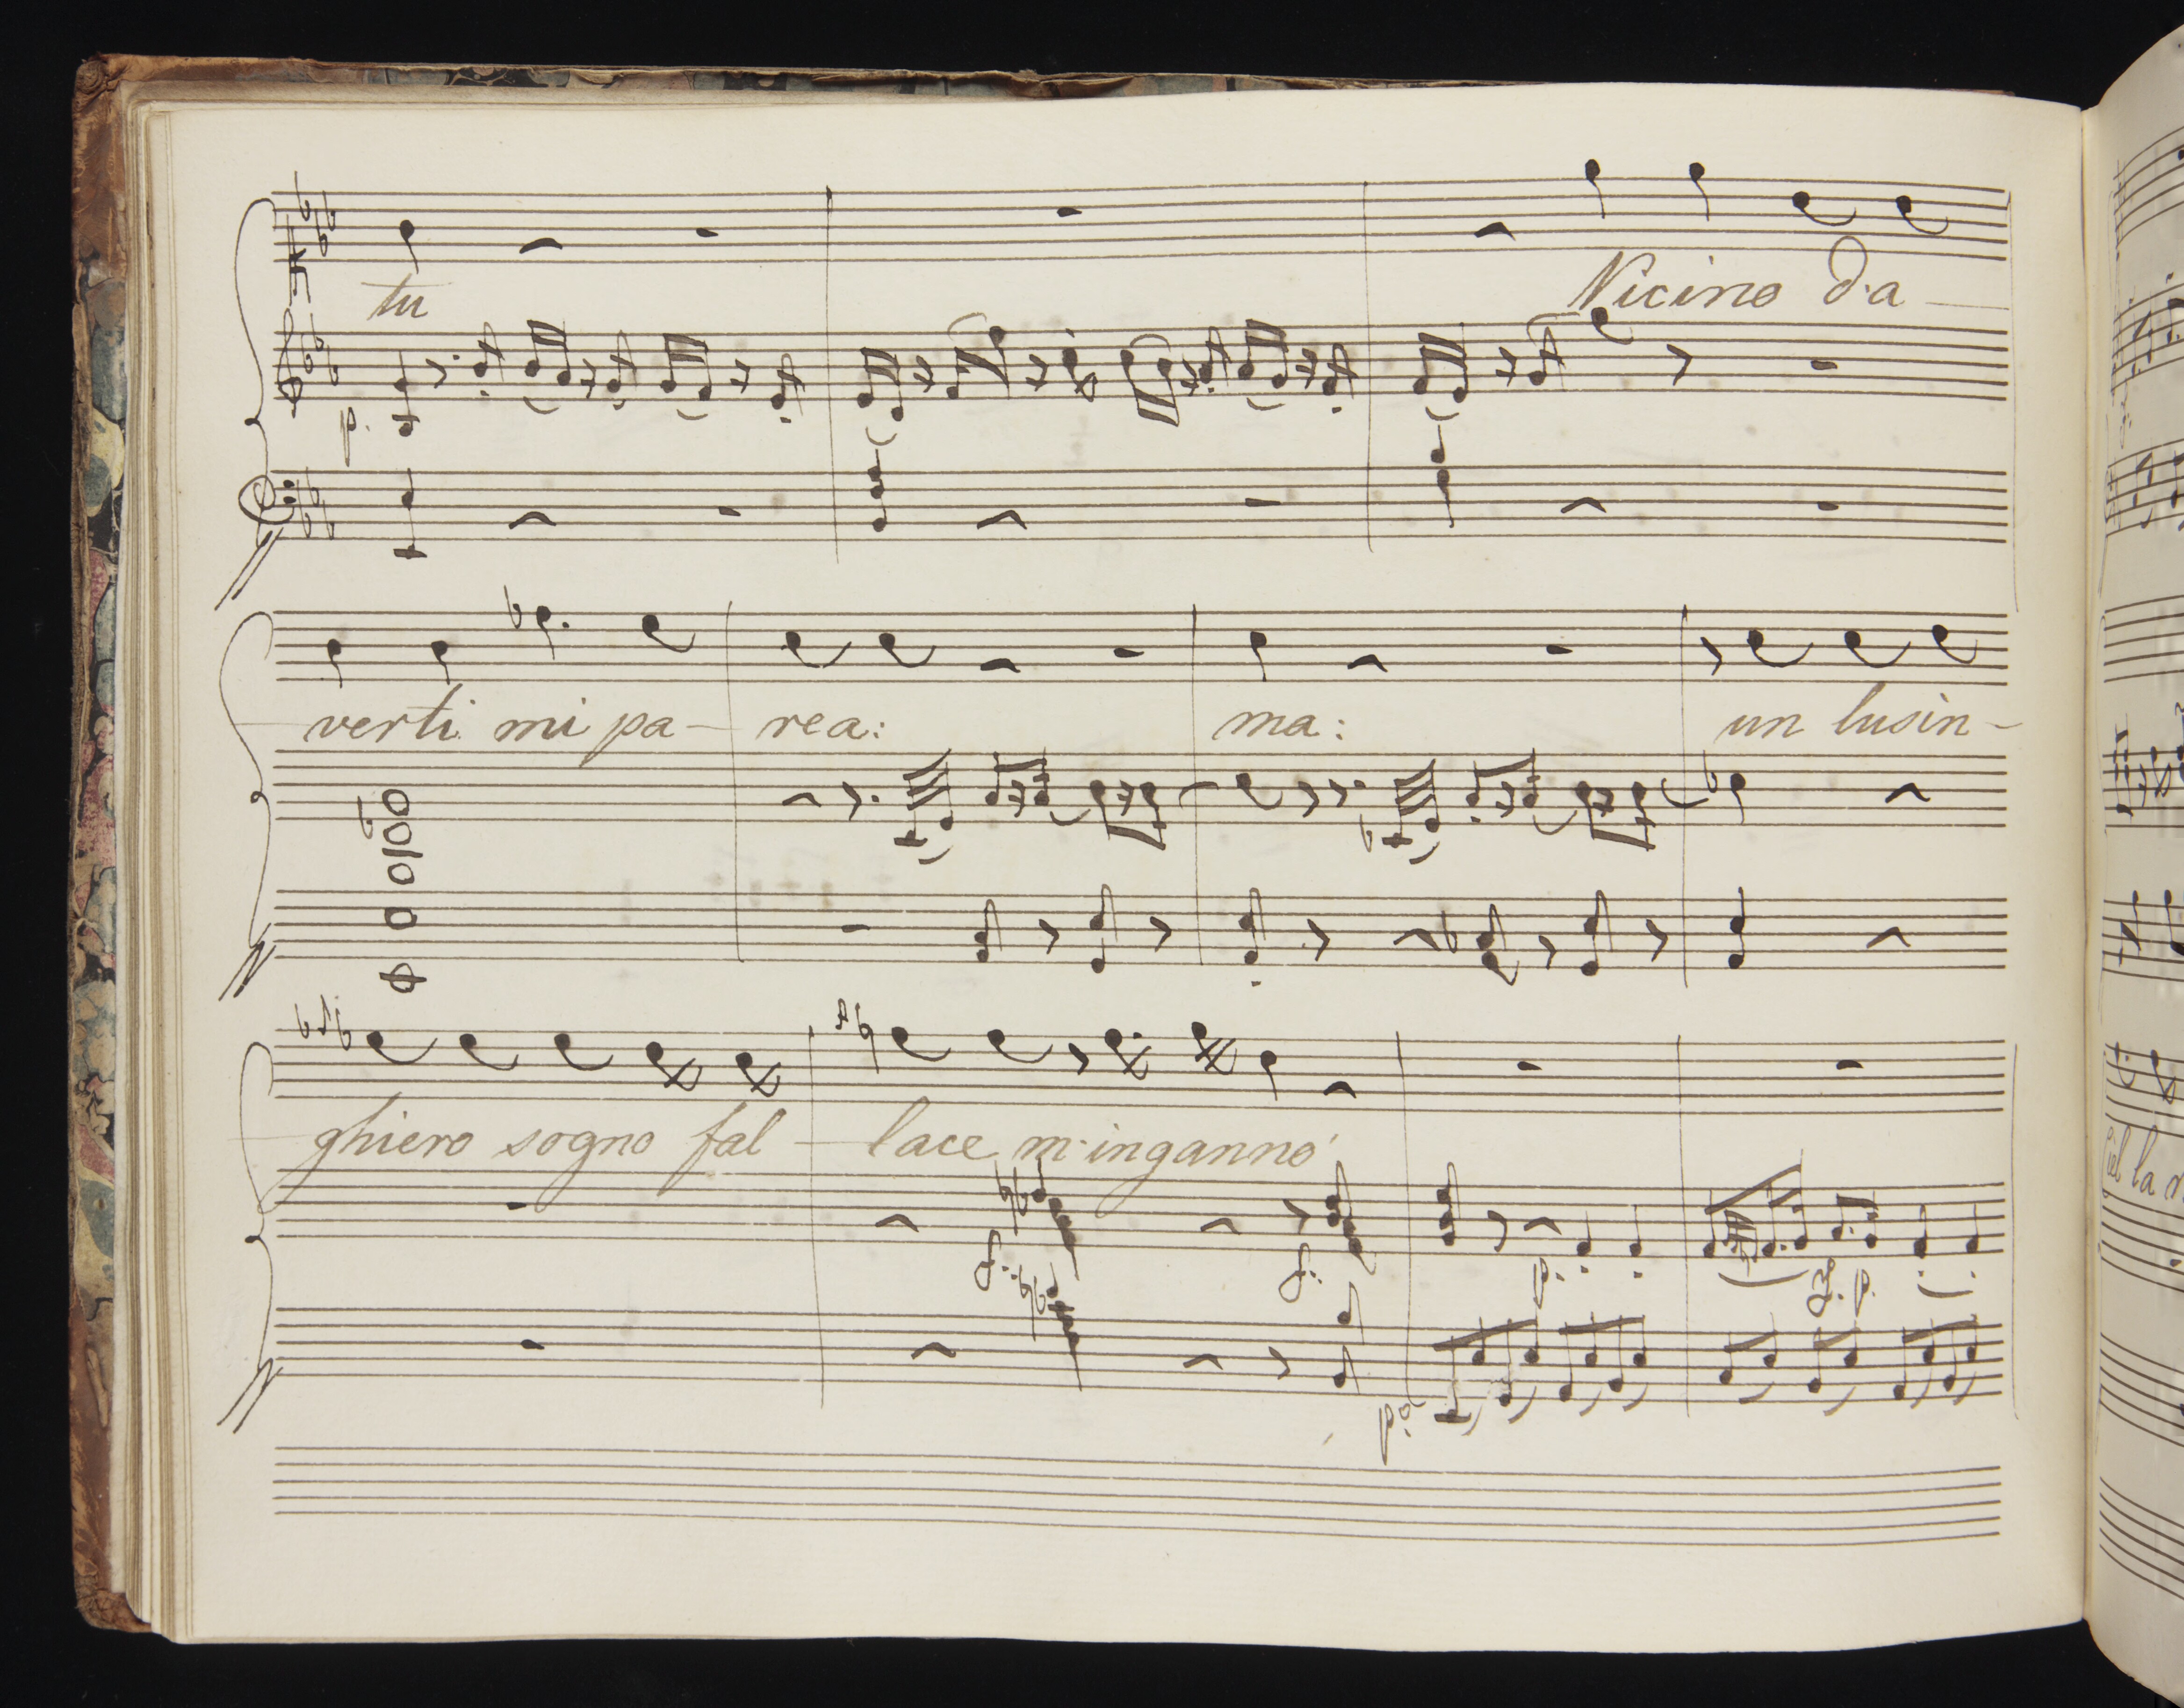 tu Vicino d'a—
p.
verti mi pa— rea: ma: un lusin—
ghiero sogno fal— lace m'ingannò
f: f: p. sf. p.
po: